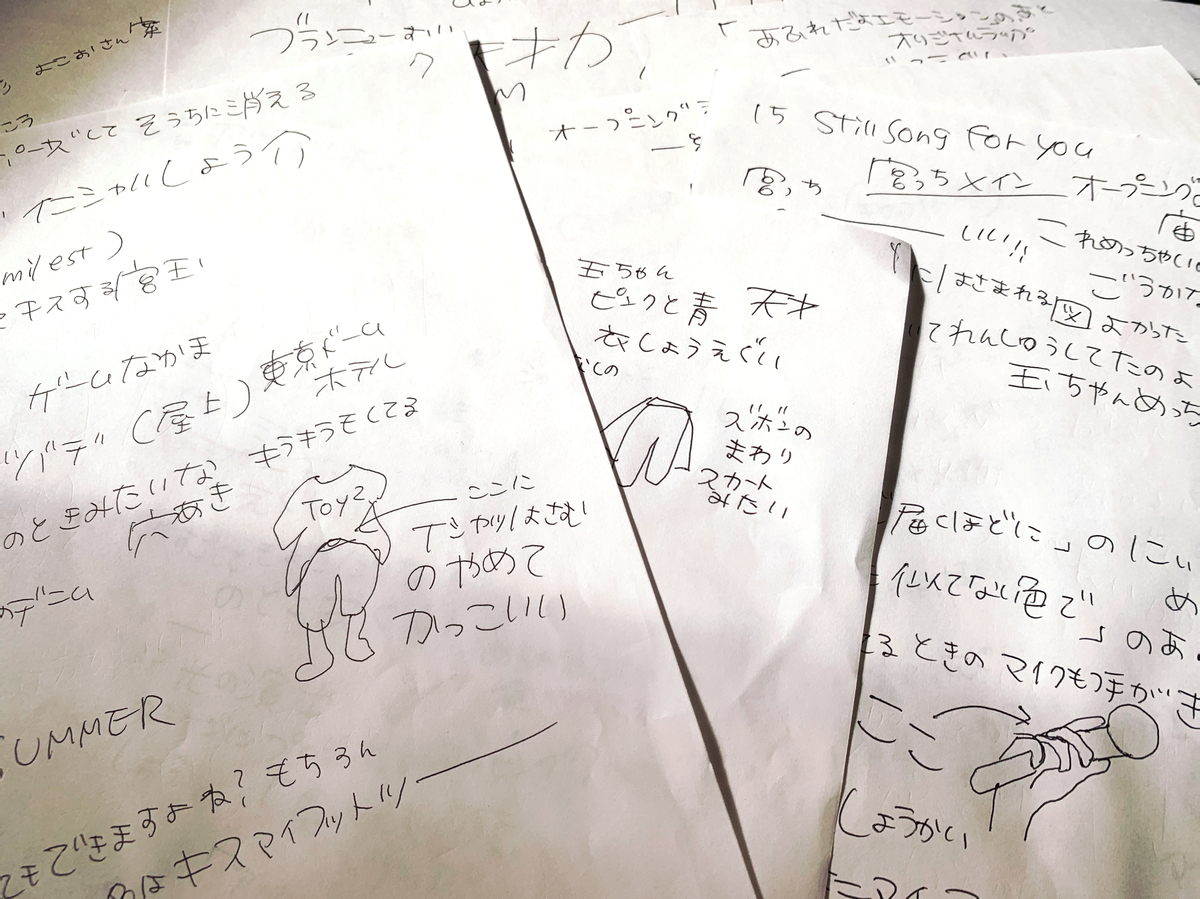 よこおさん
ポーズして そうちに消える
イニシャルしょう介
milest)
キスする宮玉
ゲームなかま
(屋上) 東京ドーム
ホテル
のときみたいな キラキラもしてる
穴あき
デニム
TOY2
ここに
Tシャツはさむ
のやめて
かっこいい
SUMMER
できますよね? もちろん
はキスマイフットツ
ブランニュー
天才カ
オープニング
玉ちゃん
ピンクと青 天才
衣しょうえぐい
ズボンの
まわり
スカート
みたい
あふれだすエモーションのあと
オリジナルラップ
15 Still Song for you
宮っち 宮っちメイン オープニング
いい!! これめっちゃいい
ごうかな
にはさまれる図 よかった
てれんしゅうしてたのよ
玉ちゃんめっち
届くほどに」のにぃ
似てない色で」のあ
ときの マイクもつ手が
ここ
しょうかい